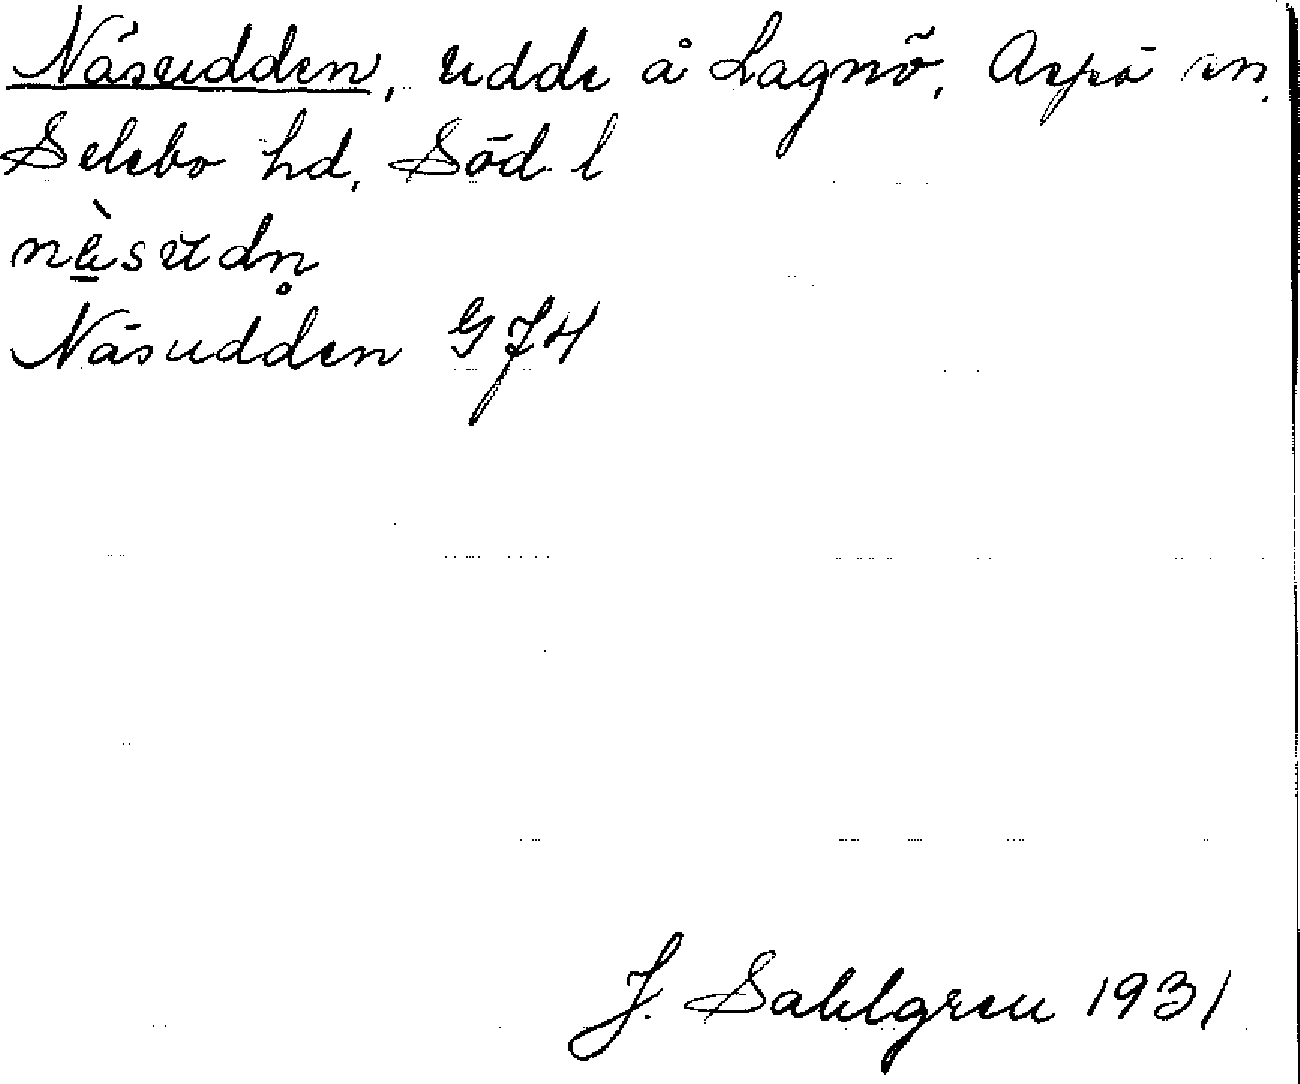 Näsudden, udde å Lagnö, Aspö sn,
Selebo hd, Söd. l
nὲ̱sūdn̥
Näsudden GJH
J. Sahlgren 1931